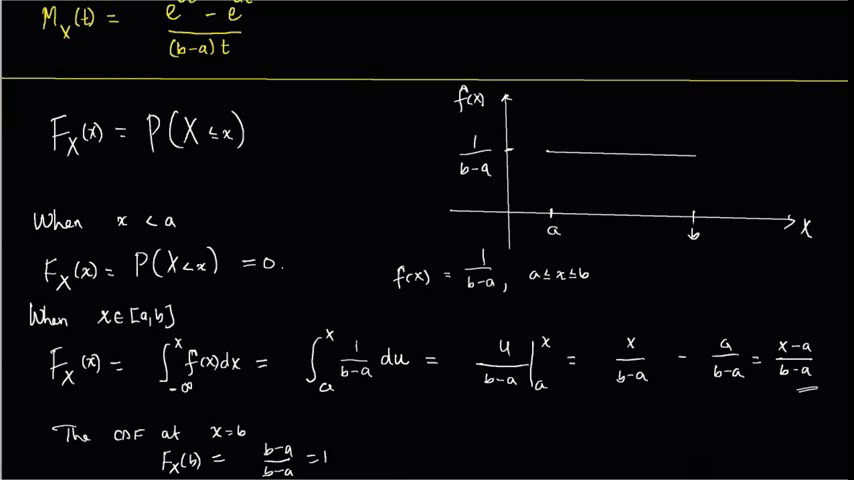 M_X(t) = (e^{bt} - e^{at}) / ((b-a)t)
F_X(x) = P(X ≤ x)
f(x)
1/(b-a)
a
b
X
When x < a
F_X(x) = P(X < x) = 0.
f(x) = 1/(b-a), a ≤ x ≤ b
When x ∈ [a,b]
F_X(x) = ∫_{-∞}^{x} f(x)dx = ∫_{a}^{x} 1/(b-a) du = u/(b-a) |_{a}^{x} = x/(b-a) - a/(b-a) = (x-a)/(b-a)
The CDF at x=b
F_X(b) = (b-a)/(b-a) = 1